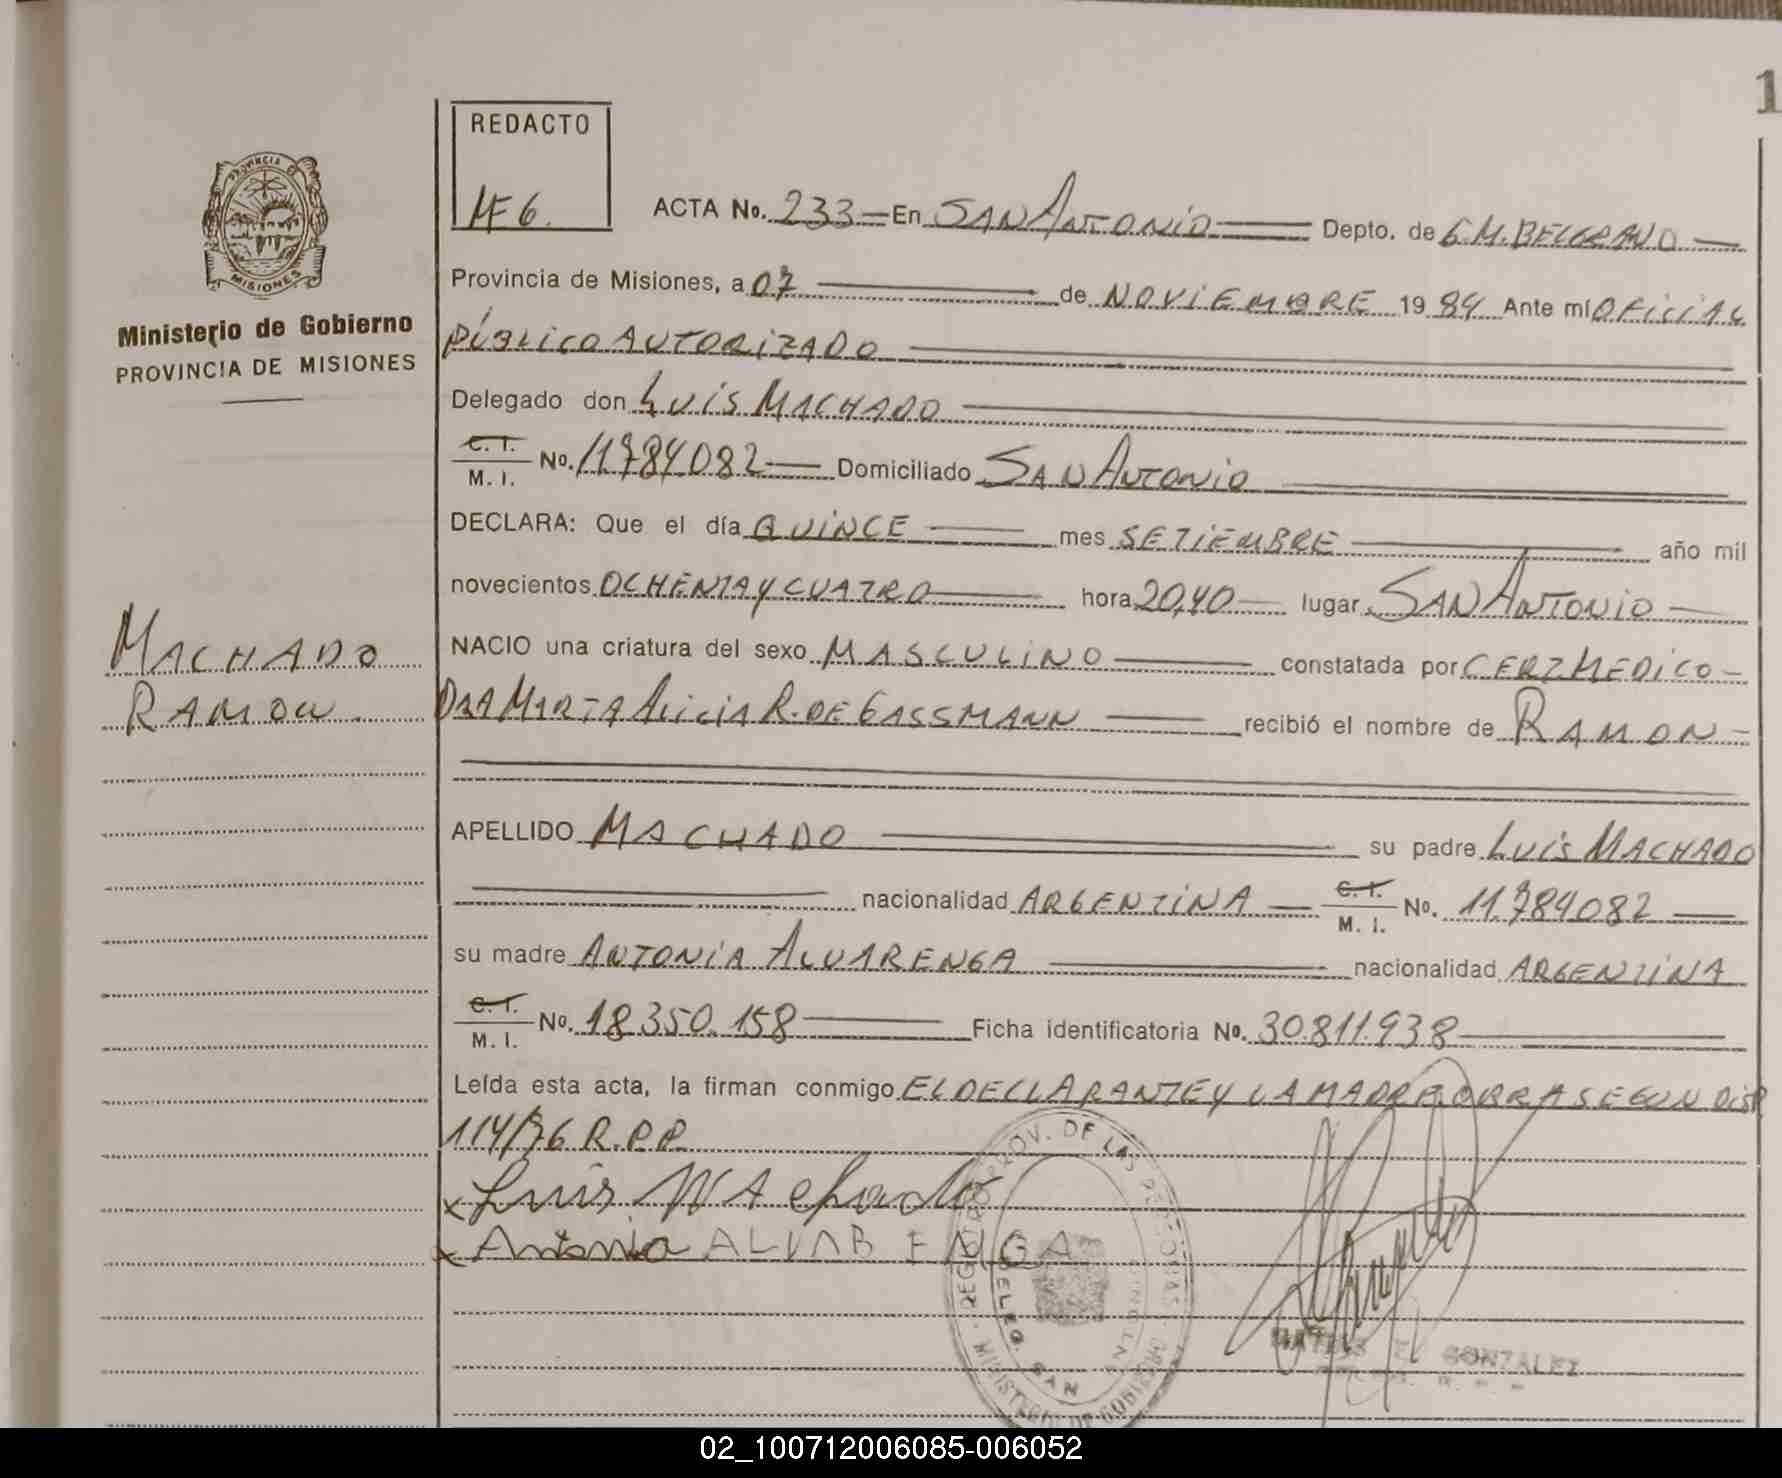 1
REDACTO
PROVINCIA DE
MISIONES
Ministerio de Gobierno
PROVINCIA DE MISIONES
ACTA No. 233 En SAN ANTONIO Depto. de G.M. BELGRANO
Provincia de Misiones, a 07 de NOVIEMBRE 1984 Ante mí OFICIAL
PÚBLICO AUTORIZADO
Delegado don LUIS MACHADO
C. I.
M. I. No. 11.784.082 Domiciliado SAN ANTONIO
DECLARA: Que el día QUINCE mes SETIEMBRE año mil
novecientos OCHENTA Y CUATRO hora 20,40 lugar SAN ANTONIO
MACHADO
RAMON
NACIO una criatura del sexo MASCULINO constatada por CERT MEDICO
DRA MARTA ALICIA R. DE GASSMANN recibió el nombre de RAMON
APELLIDO MACHADO su padre LUIS MACHADO
nacionalidad ARGENTINA C. I. M. I. No. 11.784082
su madre ANTONIA ALVARENGA nacionalidad ARGENTINA
C. I.
M. I. No. 18.350.158 Ficha identificatoria No. 30.811.938
Leída esta acta, la firman conmigo EL DECLARANTE Y LA MADRE OBRA SEGUN DISP
114/76 R.P.P.
x Luis MAchado
x Antonia ALVARENGA
REGISTRO PROV. DE LAS PERSONAS
MINISTERIO DE GOBIERNO
DELEG. SAN
GONZALEZ
02_100712006085-006052